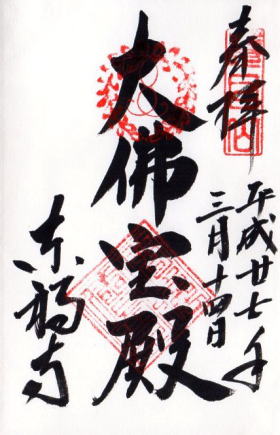 奉拝
平成廿七年
三月十四日
大佛宝殿
東福寺